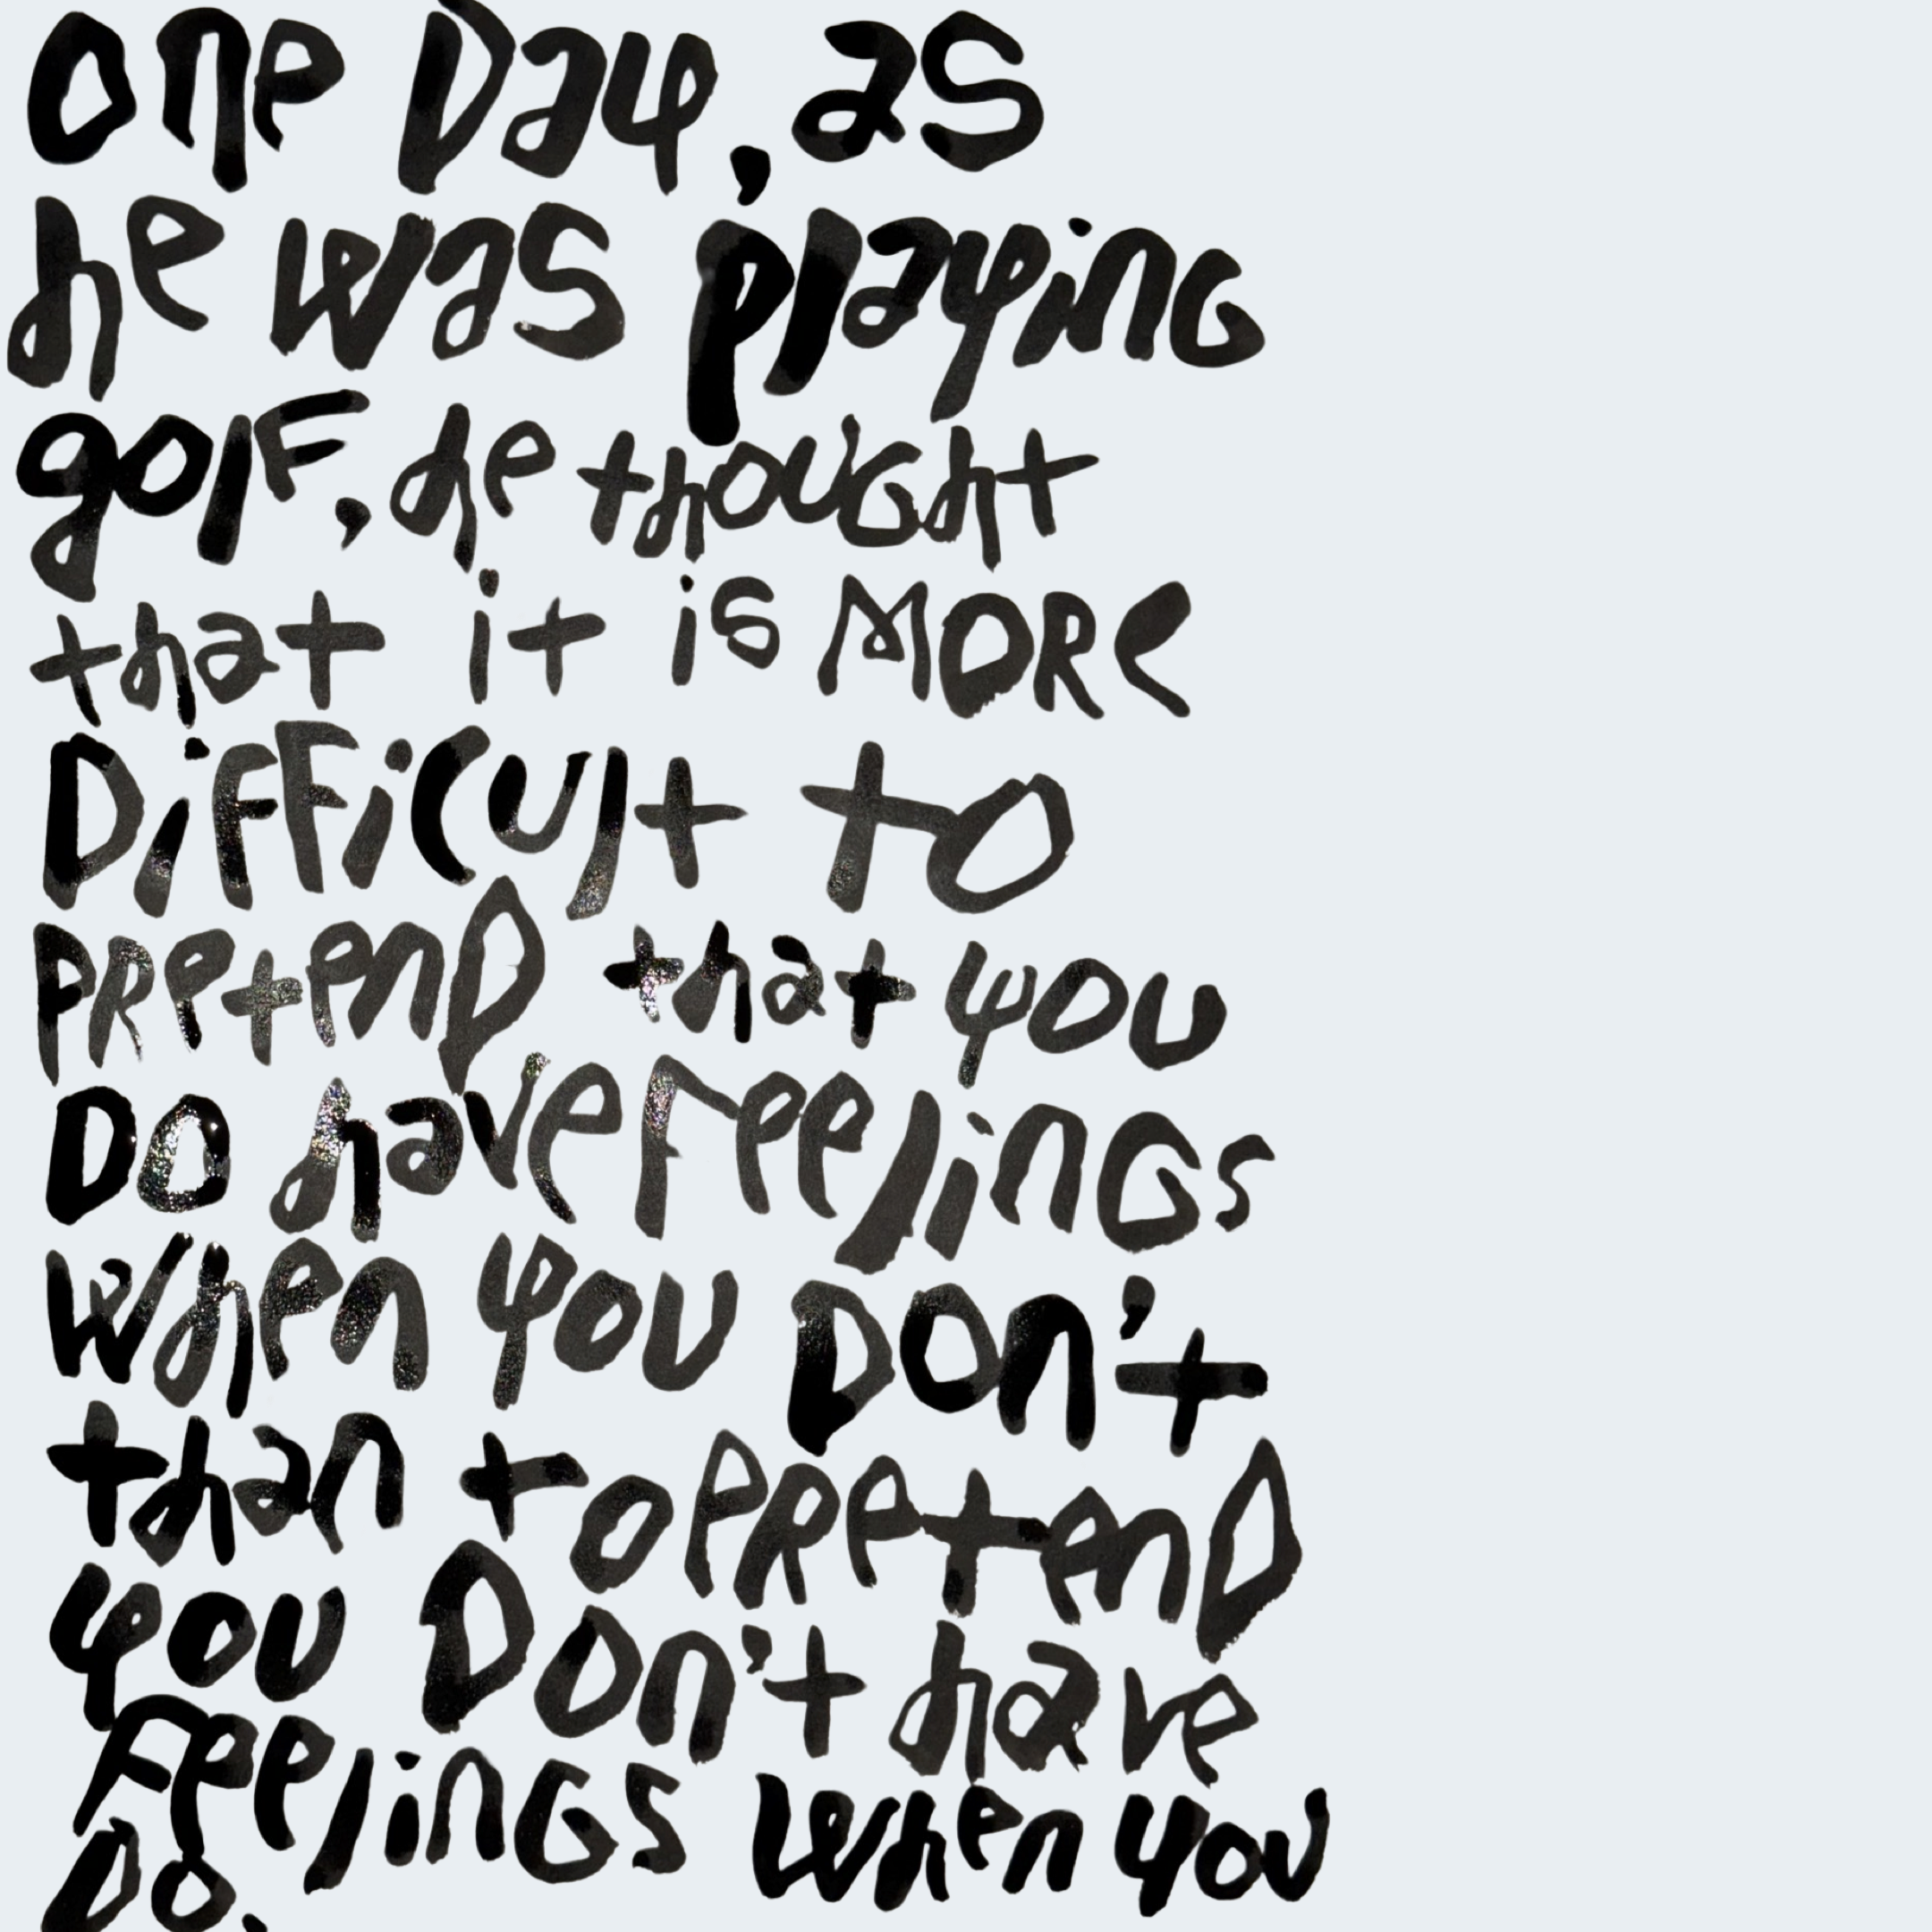 one Day, as
he was playing
golF, he thouGht
that it is MORe
DiFFicult to
PRetenD that you
DO have FeelinGs
when you Don't
than to PRetenD
you Don't have
FeelinGs when you
DO.